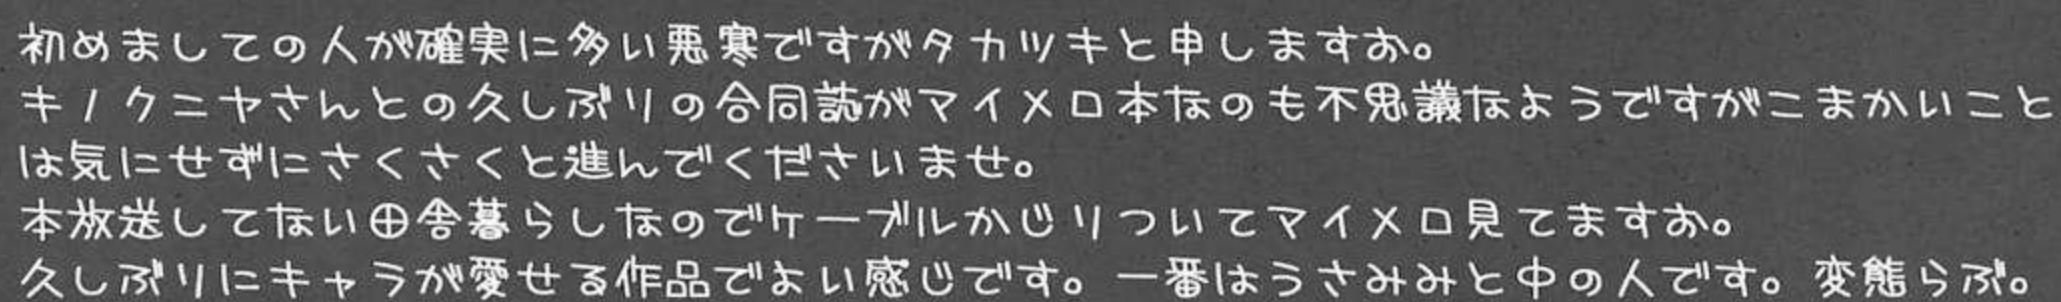 初めましての人が確実に多い悪寒ですがタカツキと申しますお。
キノクニヤさんとの久しぶりの合同誌がマイメロ本なのも不思議なようですがこまかいこと
は気にせずにさくさくと進んでくださいませ。
本放送してない田舎暮らしなのでケーブルかじりついてマイメロ見てますお。
久しぶりにキャラが愛せる作品でよい感じです。一番はうさみみと中の人です。変態らぶ。